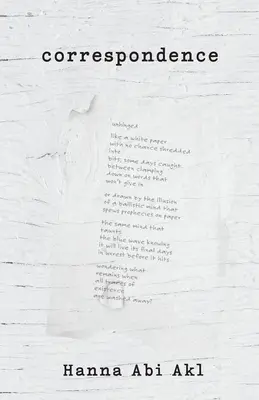 correspondence
unhinged
like a white paper
with no chance shredded
into
bits, some days caught
between clamping
down on words that
won't give in
or drawn by the illusion
of a ballistic mind that
spews prophecies on paper
the same mind that
taunts
the blue wave knowing
it will live its final days
in unrest before it hits
wondering what
remains when
all traces of
existence
are washed away?
Hanna Abi Akl